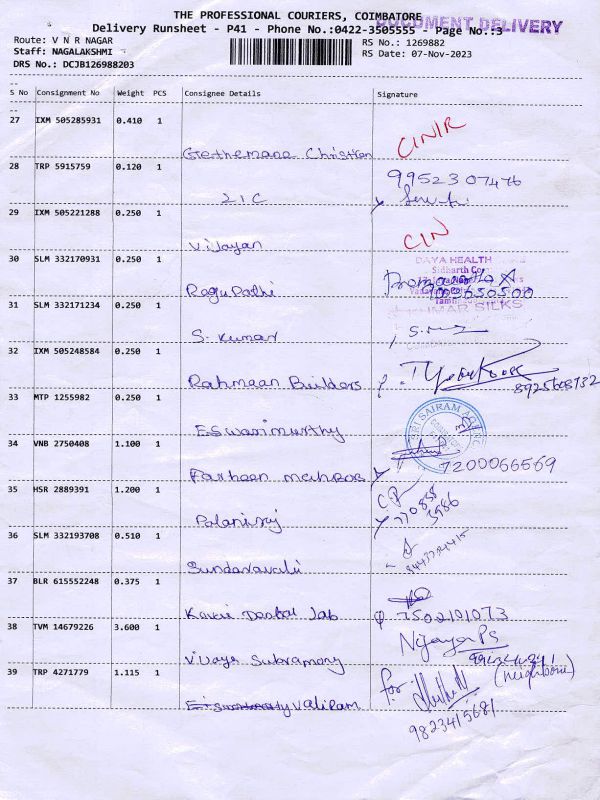 THE PROFESSIONAL COURIERS, COIMBATORE
DOCUMENT DELIVERY
Delivery Runsheet - P41 - Phone No.:0422-3505555 - Page No.:3
Route: V N R NAGAR
RS No.: 1269882
Staff: NAGALAKSHMI
RS Date: 07-Nov-2023
DRS No.: DCJB126988203
S No Consignment No Weight PCS Consignee Details Signature
27 IXM 505285931 0.410 1
Gethemane Christian CINR
28 TRP 5915759 0.120 1
9952307476
LIC
29 IXM 505221288 0.250 1
Vijayan CIN
30 SLM 332170931 0.250 1
DAYA HEALTH
Sidharth Co
Ragupathi
KUMAR SILKS
31 SLM 332171234 0.250 1
S. Kumar
32 IXM 505248584 0.250 1
Rahmaan Builders
8925608732
33 MTP 1255982 0.250 1
SRI SAIRAM
Eswarimurthy
34 VNB 2750408 1.100 1
Farheen Mehroos 7200066569
35 HSR 2889391 1.200 1
Palaniraj
36 SLM 332193708 0.510 1
Sundaravalli
37 BLR 615552248 0.375 1
Kaveri Dental Lab 7502191073
38 TVM 14679226 3.600 1
Vijaya Subramony
(neighbour)
39 TRP 4271779 1.115 1
for
Valiram
9823415681